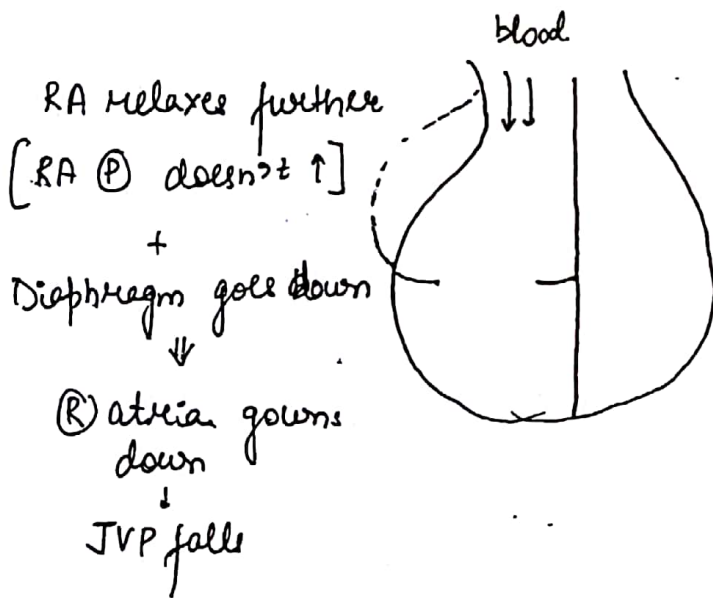 blood
RA relaxes further
[RA Ⓟ doesn't ↑]
+
Diaphragm goes down
⇓
Ⓡ atria gowns
down
↓
JVP falls